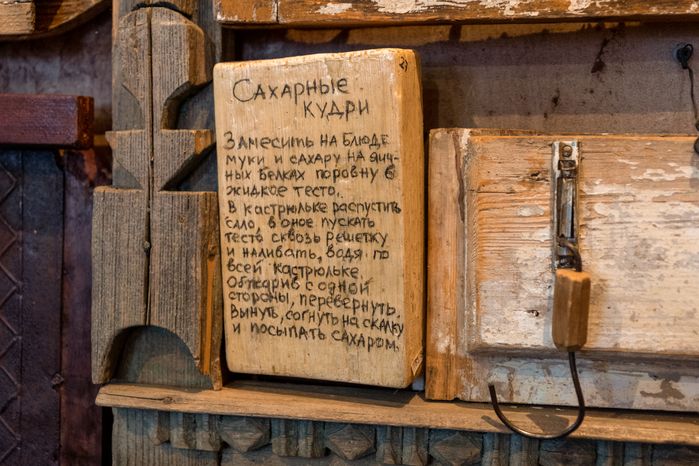 Сахарные
кудри
Замесить на блюде
муки и сахару на яич-
ных белках поровну в
жидкое тесто.
В кастрюльке распустить
сало, в оное пускать
тесто сквозь решетку
и наливать, водя по
всей кастрюльке.
Обжарив с одной
стороны, перевернуть.
Вынуть, согнуть на скалку
и посыпать сахаром.